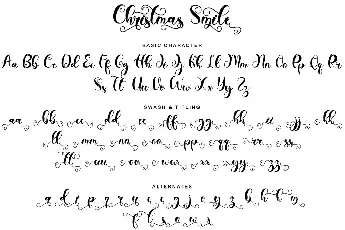 Christmas Smile
BASIC CHARACTER
Aa Bb Cc Dd Ee Ff Gg Hh Ii Jj Kk Ll Mm Nn Oo Pp Qq Rr
Ss Tt Uu Vv Ww Xx Yy Zz
SWASH & TITLING
aa bb cc dd ee ff gg hh ii jj kk
ll mm nn oo pp qq rr ss
tt uu vv ww xx yy zz
ALTERNATES